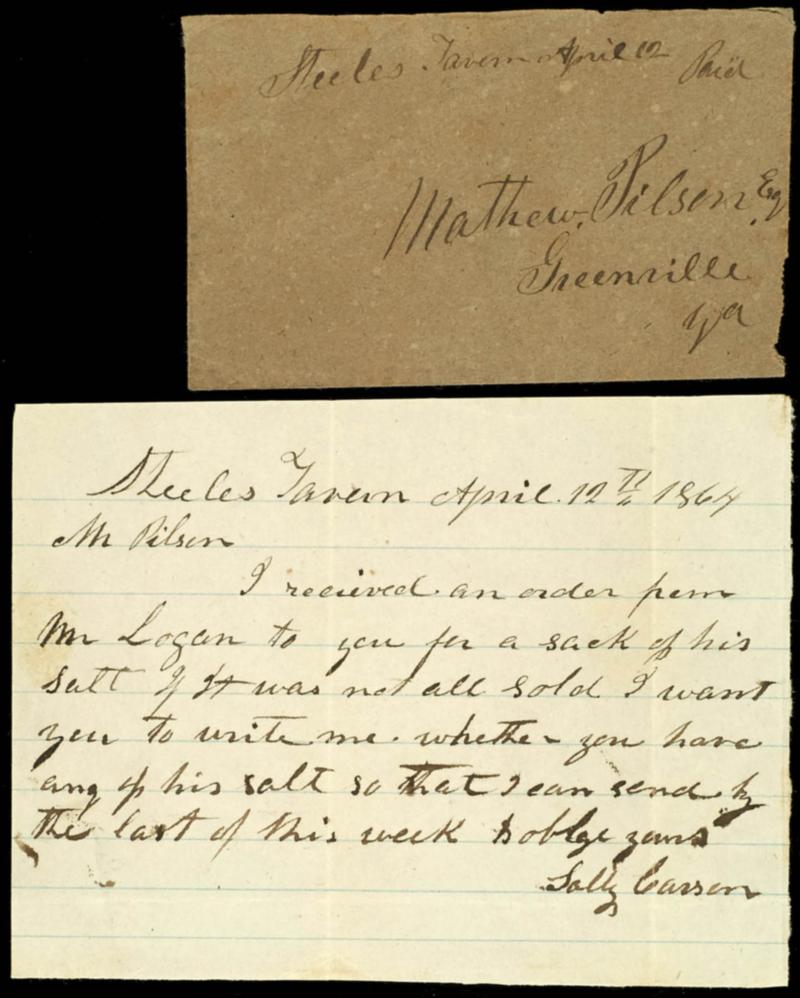 Steeles Tavern April 12 Paid
Mathew. Pilson Esq.
Greenville
Va
Steeles Tavern April. 12th 1864
Mr Pilson
I recieved an order from
Mr Logan to you for a sack of his
salt if it was not all sold I want
you to write me whether you have
any of his salt so that I can send by
the last of this week & oblge yours
Sally Carson